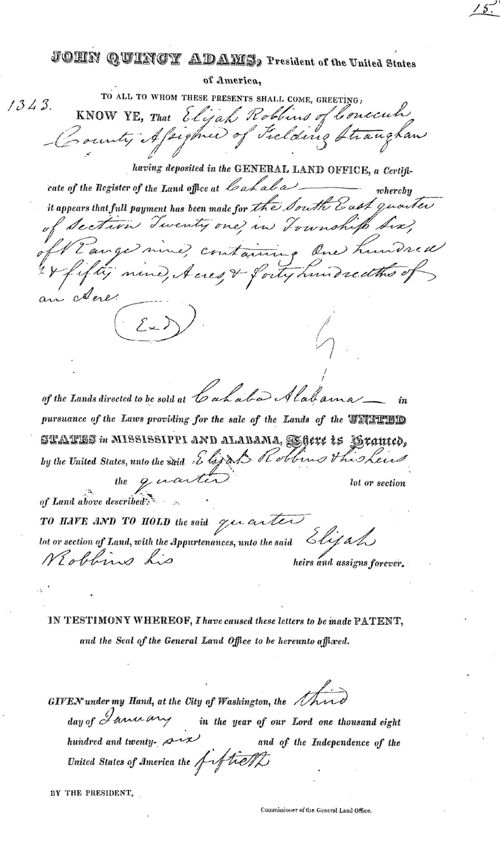 15.
JOHN QUINCY ADAMS, President of the United States
of America,
TO ALL TO WHOM THESE PRESENTS SHALL COME, GREETING:
1343.
KNOW YE, That Elijah Robbins of Conecuh
County Assignee of Fielding Straughan
having deposited in the GENERAL LAND OFFICE, a Certifi-
cate of the Register of the Land office at Cahaba whereby
it appears that full payment has been made for the South East quarter
of Section Twenty one, in Township six,
of Range nine, containing One hundred
& fifty nine, Acres, & forty hundredths of
an Acre
of the Lands directed to be sold at Cahaba Alabama in
pursuance of the Laws providing for the sale of the Lands of the UNITED
STATES in MISSISSIPPI AND ALABAMA, There is Granted,
by the United States, unto the said Elijah Robbins & his heirs
the quarter lot or section
of Land above described:
TO HAVE AND TO HOLD the said quarter
lot or section of Land, with the Appurtenances, unto the said Elijah
Robbins his heirs and assigns forever.
IN TESTIMONY WHEREOF, I have caused these letters to be made PATENT,
and the Seal of the General Land Office to be hereunto affixed.
GIVEN under my Hand, at the City of Washington, the third
day of January in the year of our Lord one thousand eight
hundred and twenty-six and of the Independence of the
United States of America the fiftieth
BY THE PRESIDENT,
Commissioner of the General Land Office.